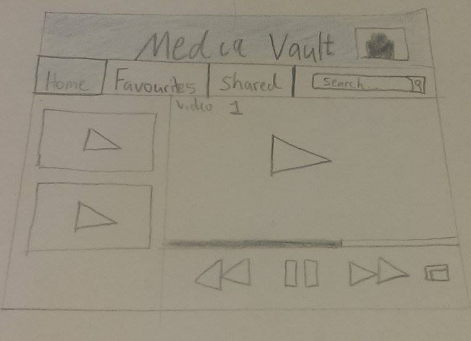 Media Vault
Home Favourites Shared Search...
Video 1